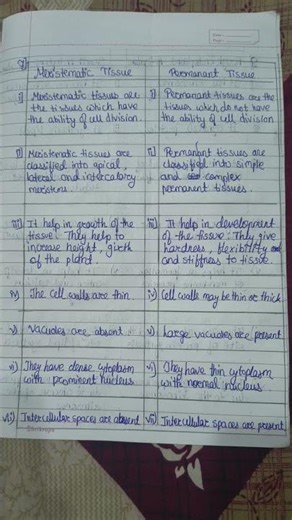 Meristematic Tissue
Permanant Tissue
i) Meristematic tissues are
the tissues which have
the ability of cell division.
i) Permanant tissues are the
tissues which do not have
the ability of cell division
ii) Meristematic tissues are
classified into apical,
lateral and intercalary
meristem.
ii) Permanant tissues are
classified into simple
and complex
permanent tissues.
iii) It help in growth of the
tissue. They help to
increase height, girth
of the plant.
iii) It help in development
of the tissue. They give
hardness, flexibility
and stiffness to tissue.
iv) The cell walls are thin.
iv) Cell walls may be thin or thick
v) Vacuoles are absent
v) Large vacuoles are present
vi) They have dense cytoplasm
with prominent nucleus
vi) They have thin cytoplasm
with normal nucleus
vii) Intercellular spaces are absent
vii) Intercellular spaces are present